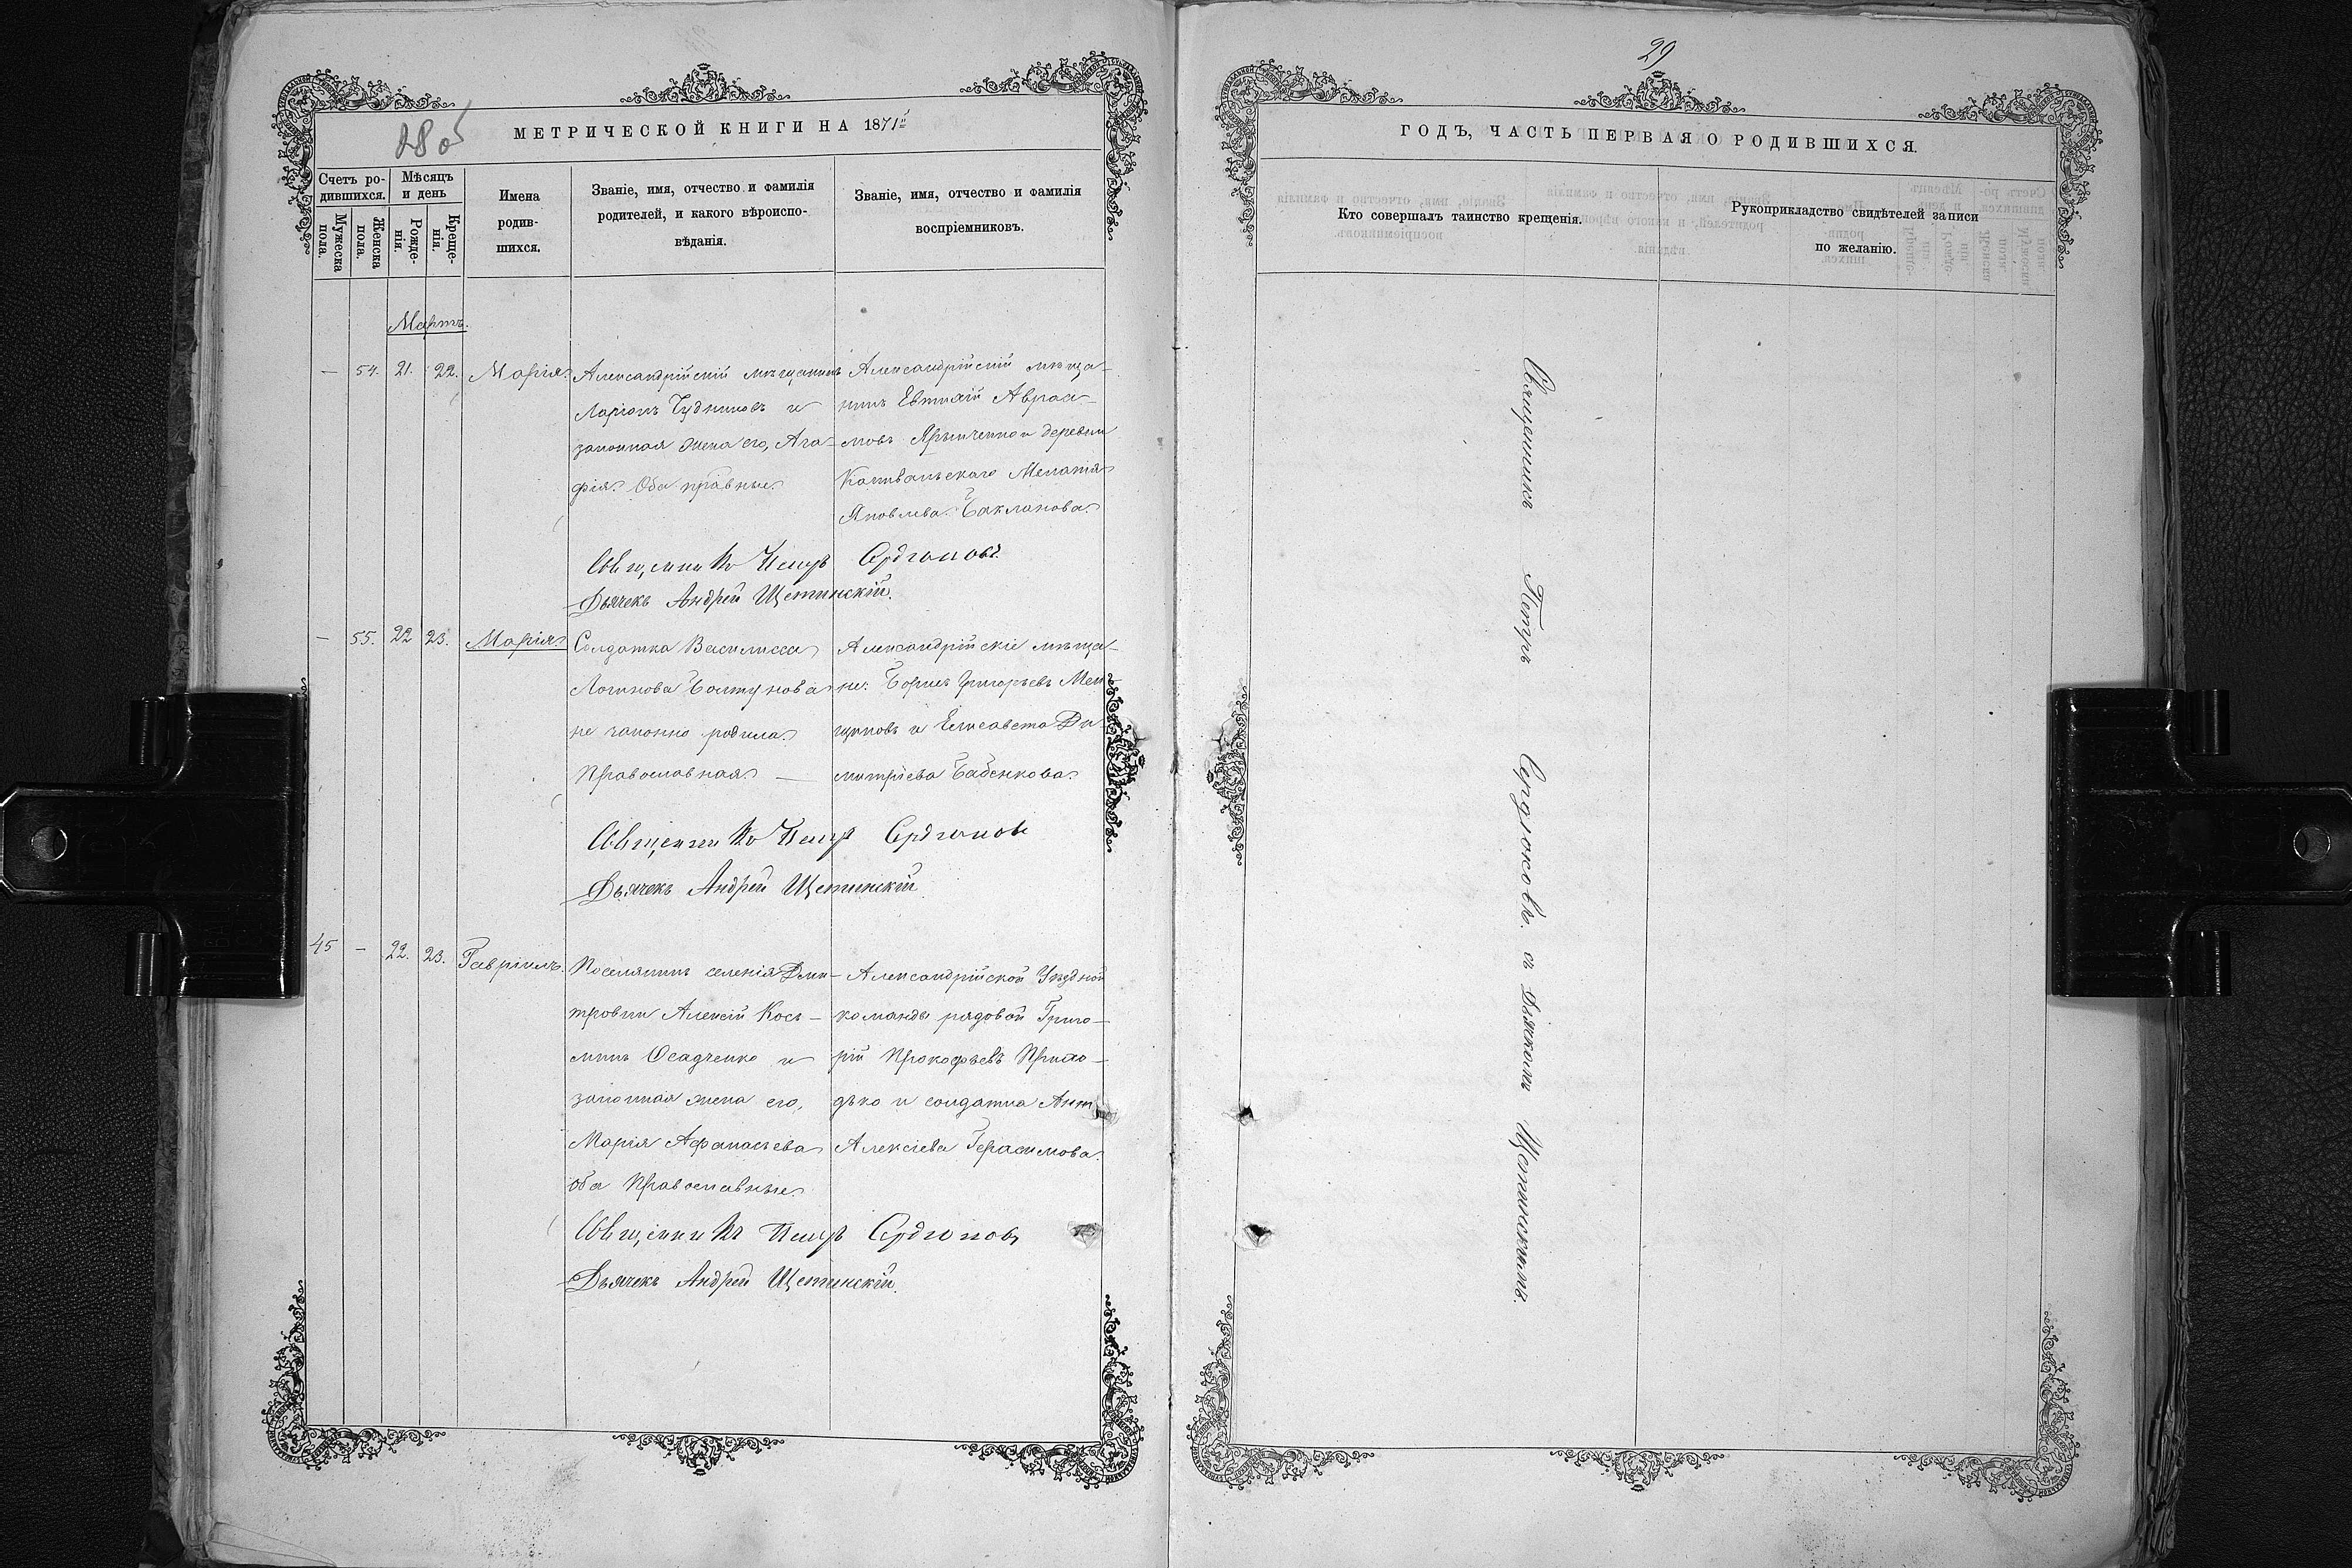 28 об
МЕТРИЧЕСКОЙ КНИГИ НА 1871й
Счетъ ро-
дившихся.
Мѣсяцъ
и день
Мужеска
пола.
Женска
пола.
Рожде-
нія.
Креще-
нія.
Имена
родив-
шихся.
Званіе, имя, отчество и фамилія
родителей, и какого вѣроиспо-
вѣданія.
Званіе, имя, отчество и фамилія
воспріемниковъ.
Мартъ.
— 54. 21. 22. Марія.
Александрійскій мѣщанинъ
Ларіонъ Чудниковъ и
законная жена его, Ага-
фія. Оба правные.
Александрійскій мѣща-
нинъ Евтихій Авраа-
мовъ и деревни
Меланія
Яковлева Бакланова.
Священникъ Петръ Сердюковъ.
Дьячекъ Андрей Щетинскій.
— 55. 22 23. Марія.
Солдатка Василисса
Логинова Болтунова
не законно родила.
Православная. —
Александрійскіе мѣща-
не: Борисъ Григорьевъ Мен-
щиковъ и Елисавета Ди-
митріева Бабенкова.
Священникъ Петръ Сердюковъ
Дьячекъ Андрей Щетинскій.
45 — 22. 23. Гавріилъ.
Поселянинъ селенія Дми-
тровки Алексій Кось-
минъ Осадченко и
законная жена его,
Марія Афанасьева
оба Православные.
Александрійской Уѣздной
команды рядовой Григо-
рій Прокофьевъ Прихо-
дько и солдатка
Алексіева Герасимова.
Священникъ Петръ Сердюковъ
Дьячекъ Андрей Щетинскій.
29
ГОДЪ, ЧАСТЬ ПЕРВАЯ О РОДИВШИХСЯ.
Кто совершалъ таинство крещенія.
Рукоприкладство свидѣтелей записи
по желанію.
Священникъ Петръ Сердюковъ. съ Дьячкомъ Щетинскимъ.